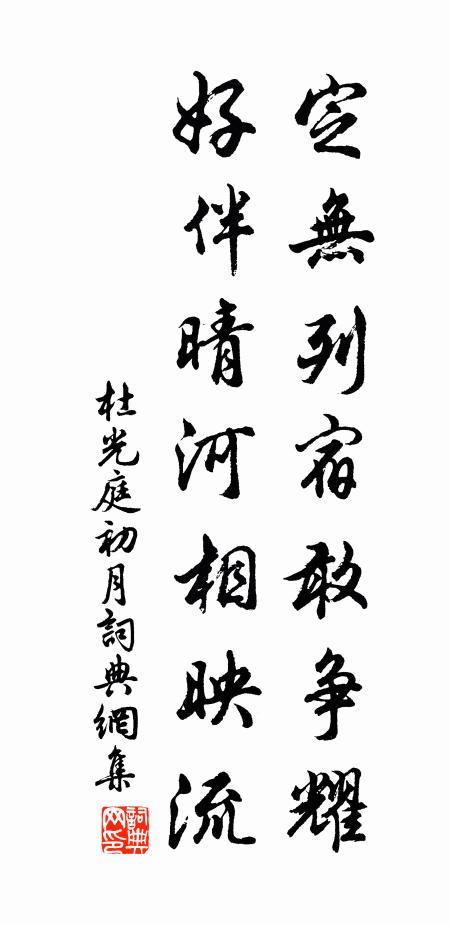 定無列宿敢争耀
好伴晴河相映流
杜光庭初月詞典網集
詞典网印